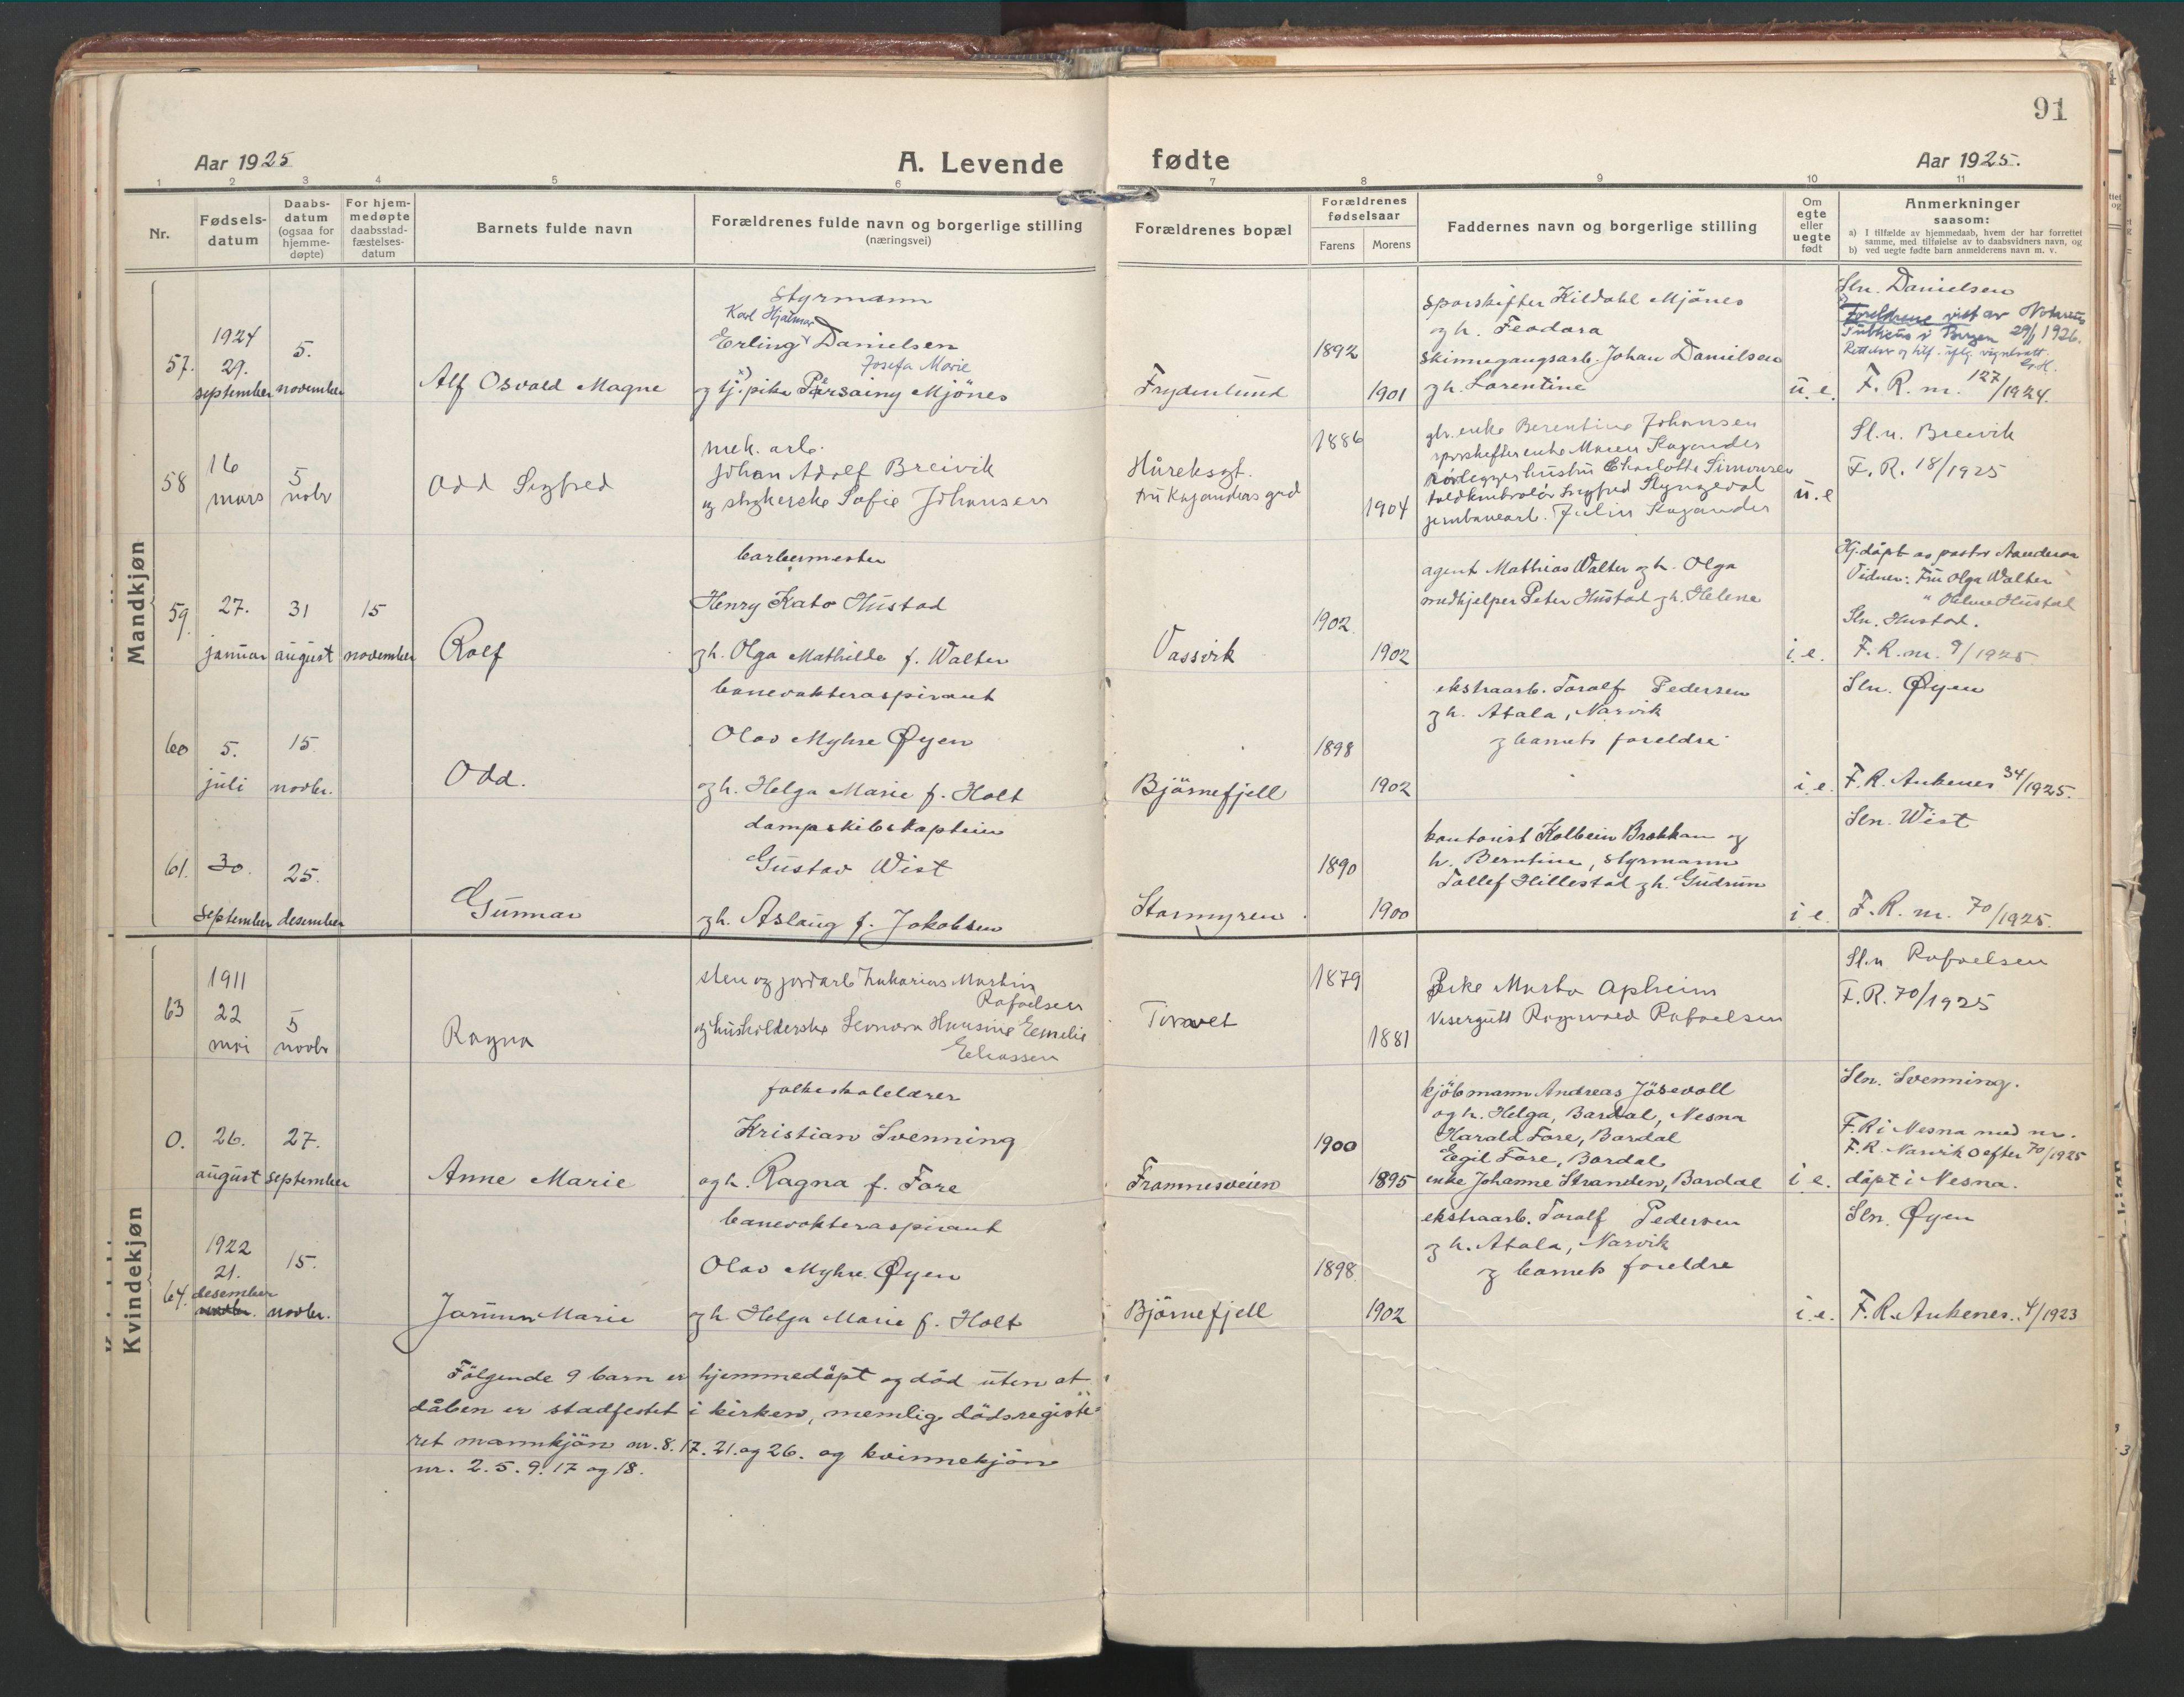 91
Aar 1925
A. Levende fødte
Aar 1925.
1 2 3 4 5 6 7 8 9 10 11
Nr.
Fødsels-
datum
Daabs-
datum
(ogsaa for
hjemme-
døpte)
For hjem-
medøpte
daabsstad-
fæstelses-
datum
Barnets fulde navn
Forældrenes fulde navn og borgerlige stilling
(næringsvei)
Forældrenes bopæl
Forældrenes
fødselsaar
Farens Morens
Faddernes navn og borgerlige stilling
Om
egte
eller
uegte
født
Anmerkninger
saasom:
a) I tilfælde av hjemmedaab, hvem der har forrettet
samme, med tilføielse av to daabsvidners navn, og
b) ved uegte fødte barn anmelderens navn m. v.
Mandkjøn
57.
1924
29.
september
5.
november
Alf Osvald Magne
Styrmann
Karl Hjalmar
Erling Danielsen
Josefa Marie
og tj. pike Persainy Mjönes
Frydenlund
1892
1901
sporskifter Kildahl Mjönes
og h. Feodora
Skinnegangsarb. Johan Danielsen
og h. Lorentine
u. e.
Sln. Danielsen
Foreldrene vist av Notarius
Publicus i Bergen 29/1 1926.
F. R. nr. 127/1924.
58
16
mars
5
novbr
Odd Sigfred
mek. arb.
Johan Adolf Breivik
og strykerske Sofie Johansen
Håreksgt.
fru Kaganders grd
1886
1904
gbr. enke Berentine Johansen
sporskifterenke Maren Kagander
rörleggerhustru Charlotte Simonsen
toldkontrolör Sigfred Slyngedal
jernbanearb. Julin Kagander
u. e
Sl.n. Breivik
F. R. 18/1925
59.
27.
januar
31
august
15
november
Rolf
barbermester
Henry Kato Hustad
og h. Olga Mathilde f. Walter
Vassvik
1902.
1902
agent Mathias Walter og h. Olga
medhjelper Peter Hustad og h. Helene
i. e.
Hj.döpt av pastor Aandersen
Vidner: Fru Olga Walter
" Helene Hustad
Sln. Hustad.
F. R. nr. 9/1925
60
5.
juli
15.
novbr.
Odd.
banevokteraspirant
Olav Myhre Øyen
og h. Helga Marie f. Holt
Björnefjell
1898
1902
ekstraarb. Toralf Pedersen
og h. Atala, Narvik
og barnets foreldre
i. e.
Sln. Øyen
F. R. Ankenes 34/1925.
61.
30.
september
25.
desember
Gunnar
dampskibskaptein
Gustav Wist
og h. Aslaug f. Jakobsen
Stormyren
1890
1900
kontorist Kolbein Brekkan og
h. Berntine, styrmann
Tollef Hillestad og h. Gudrun
i. e.
Sln. Wist
F. R. nr. 70/1925.
Kvindekjøn
63
1911
22
mai
5
novbr
Ragna
sten og jordarb Zakarias Martin
Rafaelsen
og husholderske Leonora Hansine Emelie
Eliassen
Toraet
1879
1881
Enke Marta Apheim
Visergutt Ragnvald Rafaelsen
Sl.n Rafaelsen
F. R. 70/1925
0.
26.
august
27.
september
Anne Marie
folkeskolelærer
Kristian Svenning
og h. Ragna f. Fore
Framnesveien
1900
1895
kjöbmann Andreas Jösevoll
og h. Helga, Bardal, Nesna
Harald Fore, Bardal
Egil Fore, Bardal
enke Johanne Stranden, Bardal
i. e.
Sln. Svenning.
F. R i Nesna med nr.
F. R. Narvik 0 efter 70/1925
döpt i Nesna.
64.
1922
21.
desember
novbr.
15.
novbr.
Jorunn Marie
banevokteraspirant
Olav Myhre Øyen
og h Helga Marie f. Holt
Björnefjell
1898
1902
ekstraarb. Toralf Pedersen
og h. Atala, Narvik
og barnets foreldre
i. e.
Sln. Øyen
F. R. Ankenes. 4/1923
Fölgende 9 barn er hjemmedöpt og död uten at
dåben er stadfestet i kirken, nemlig dödsregiste-
ret mannkjön nr. 8. 17. 21. og 26. og kvinnekjön
nr. 2. 5. 9. 17 og 18.